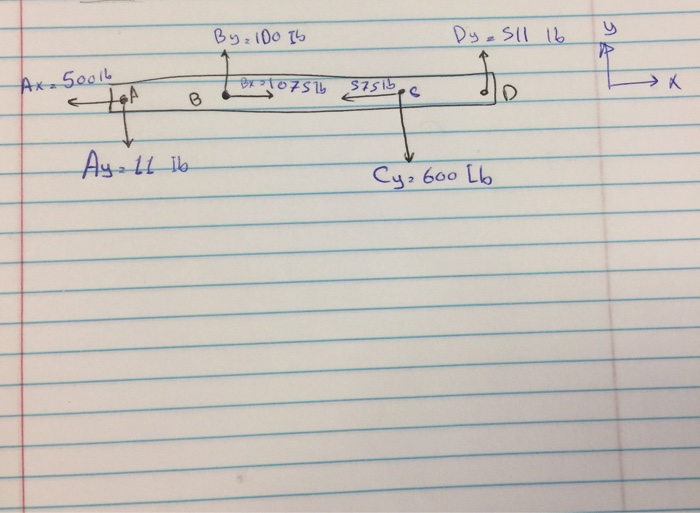 By=100 Ib
Dy=511 lb
y
Ax=500lb
A
B
Bx=1075lb
575lb
C
D
x
Ay=11 Ib
Cy=600 Ib